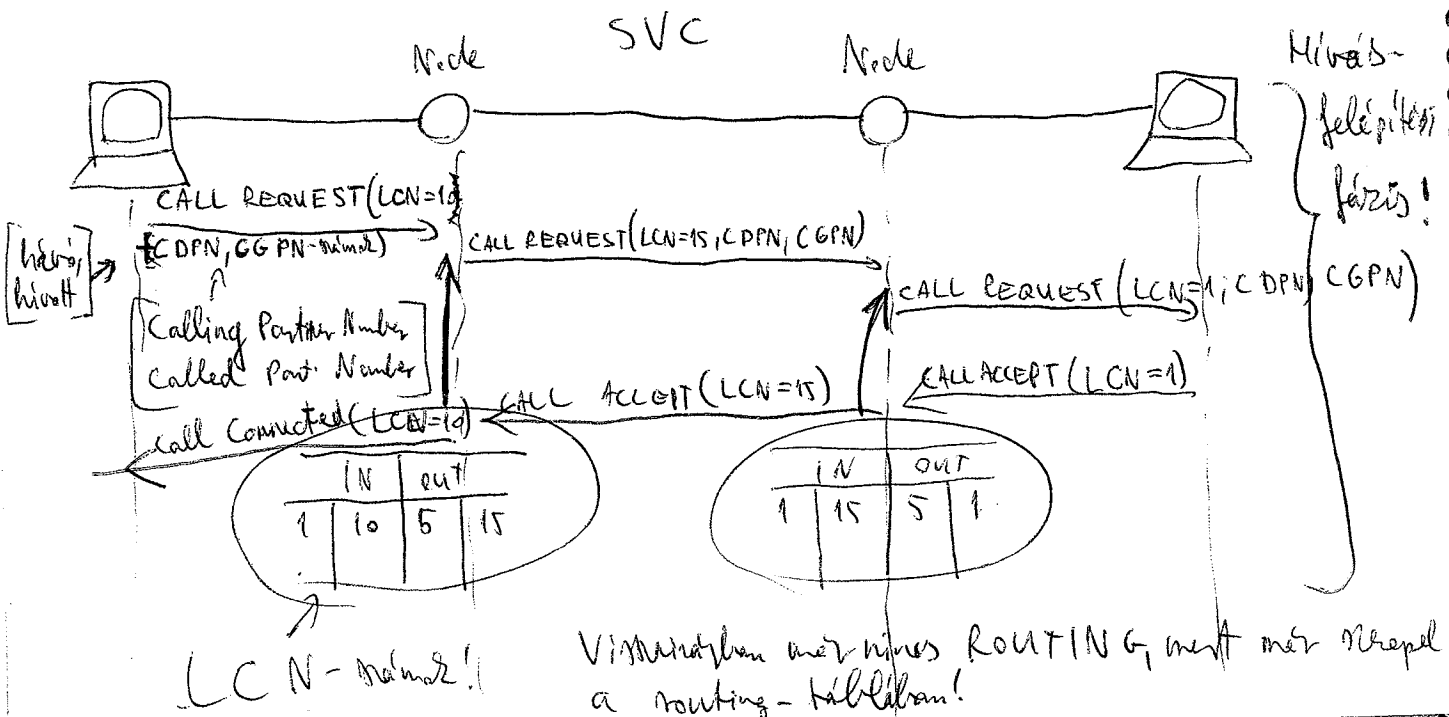 SVC
Node
Node
Hívás-
felépítési
fázis!
CALL REQUEST(LCN=10)
(CDPN, CGPN-számok)
[hívó,
hívott]
CALL REQUEST(LCN=15, CDPN, CGPN)
CALL REQUEST (LCN=1, CDPN, CGPN)
[Calling Partner Number
Called Part. Number]
CALL ACCEPT (LCN=1)
CALL ACCEPT (LCN=15)
Call Connected (LCN=10)
IN OUT
1 10 5 15
IN OUT
1 15 5 1
LCN-számok!
Visszairányban már nincs ROUTING, mert már szerepel
a routing-táblában!